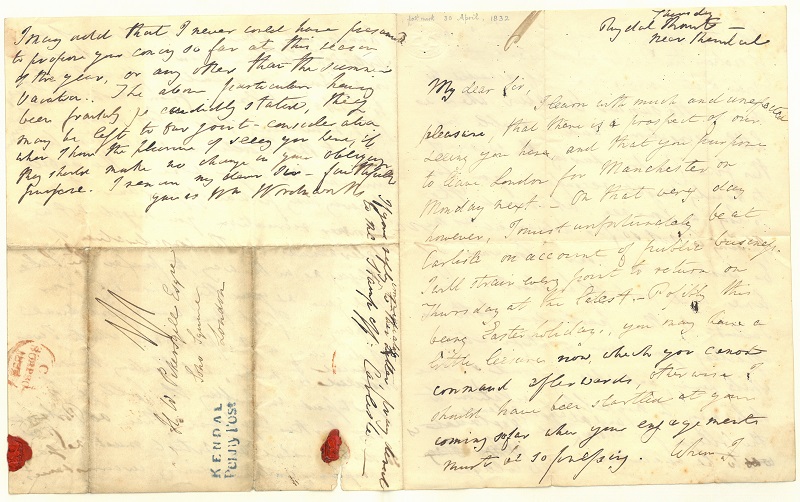 Thursday
Rydal Mount
near Kendal
My dear Sir,
I learn with much and unexpected
pleasure, that there is a prospect of our
seeing you here, and that you purpose
to leave London for Manchester on
Monday next. - On that very day
however, I must unfortunately be at
Carlisle on account of public business.
I will strain every point to return on
Thursday at the latest. - Possibly this
being Easter holidays, you may have a
little leisure now, which you cannot
command afterwards, otherwise I
should have been startled at your
coming so far when your engagements
must be so pressing. When I
I may add that I never could have presumed
to propose your coming so far at this season
of the year, or any other than the summer
Vacation. The above particulars having
been frankly & candidly stated, they
may be left to our joint-consideration
when I have the pleasure of seeing you here, if
they should make no change in your obliging
purpose. I am my dear Sir - faithfully
yours Wm Wordsworth
If you reply to this letter, pray direct
to me, Stamp Off: Carlisle -
W. Pickersgill Esqre
Soho Square
London
KENDAL
Penny Post
post mark 20 April, 1832